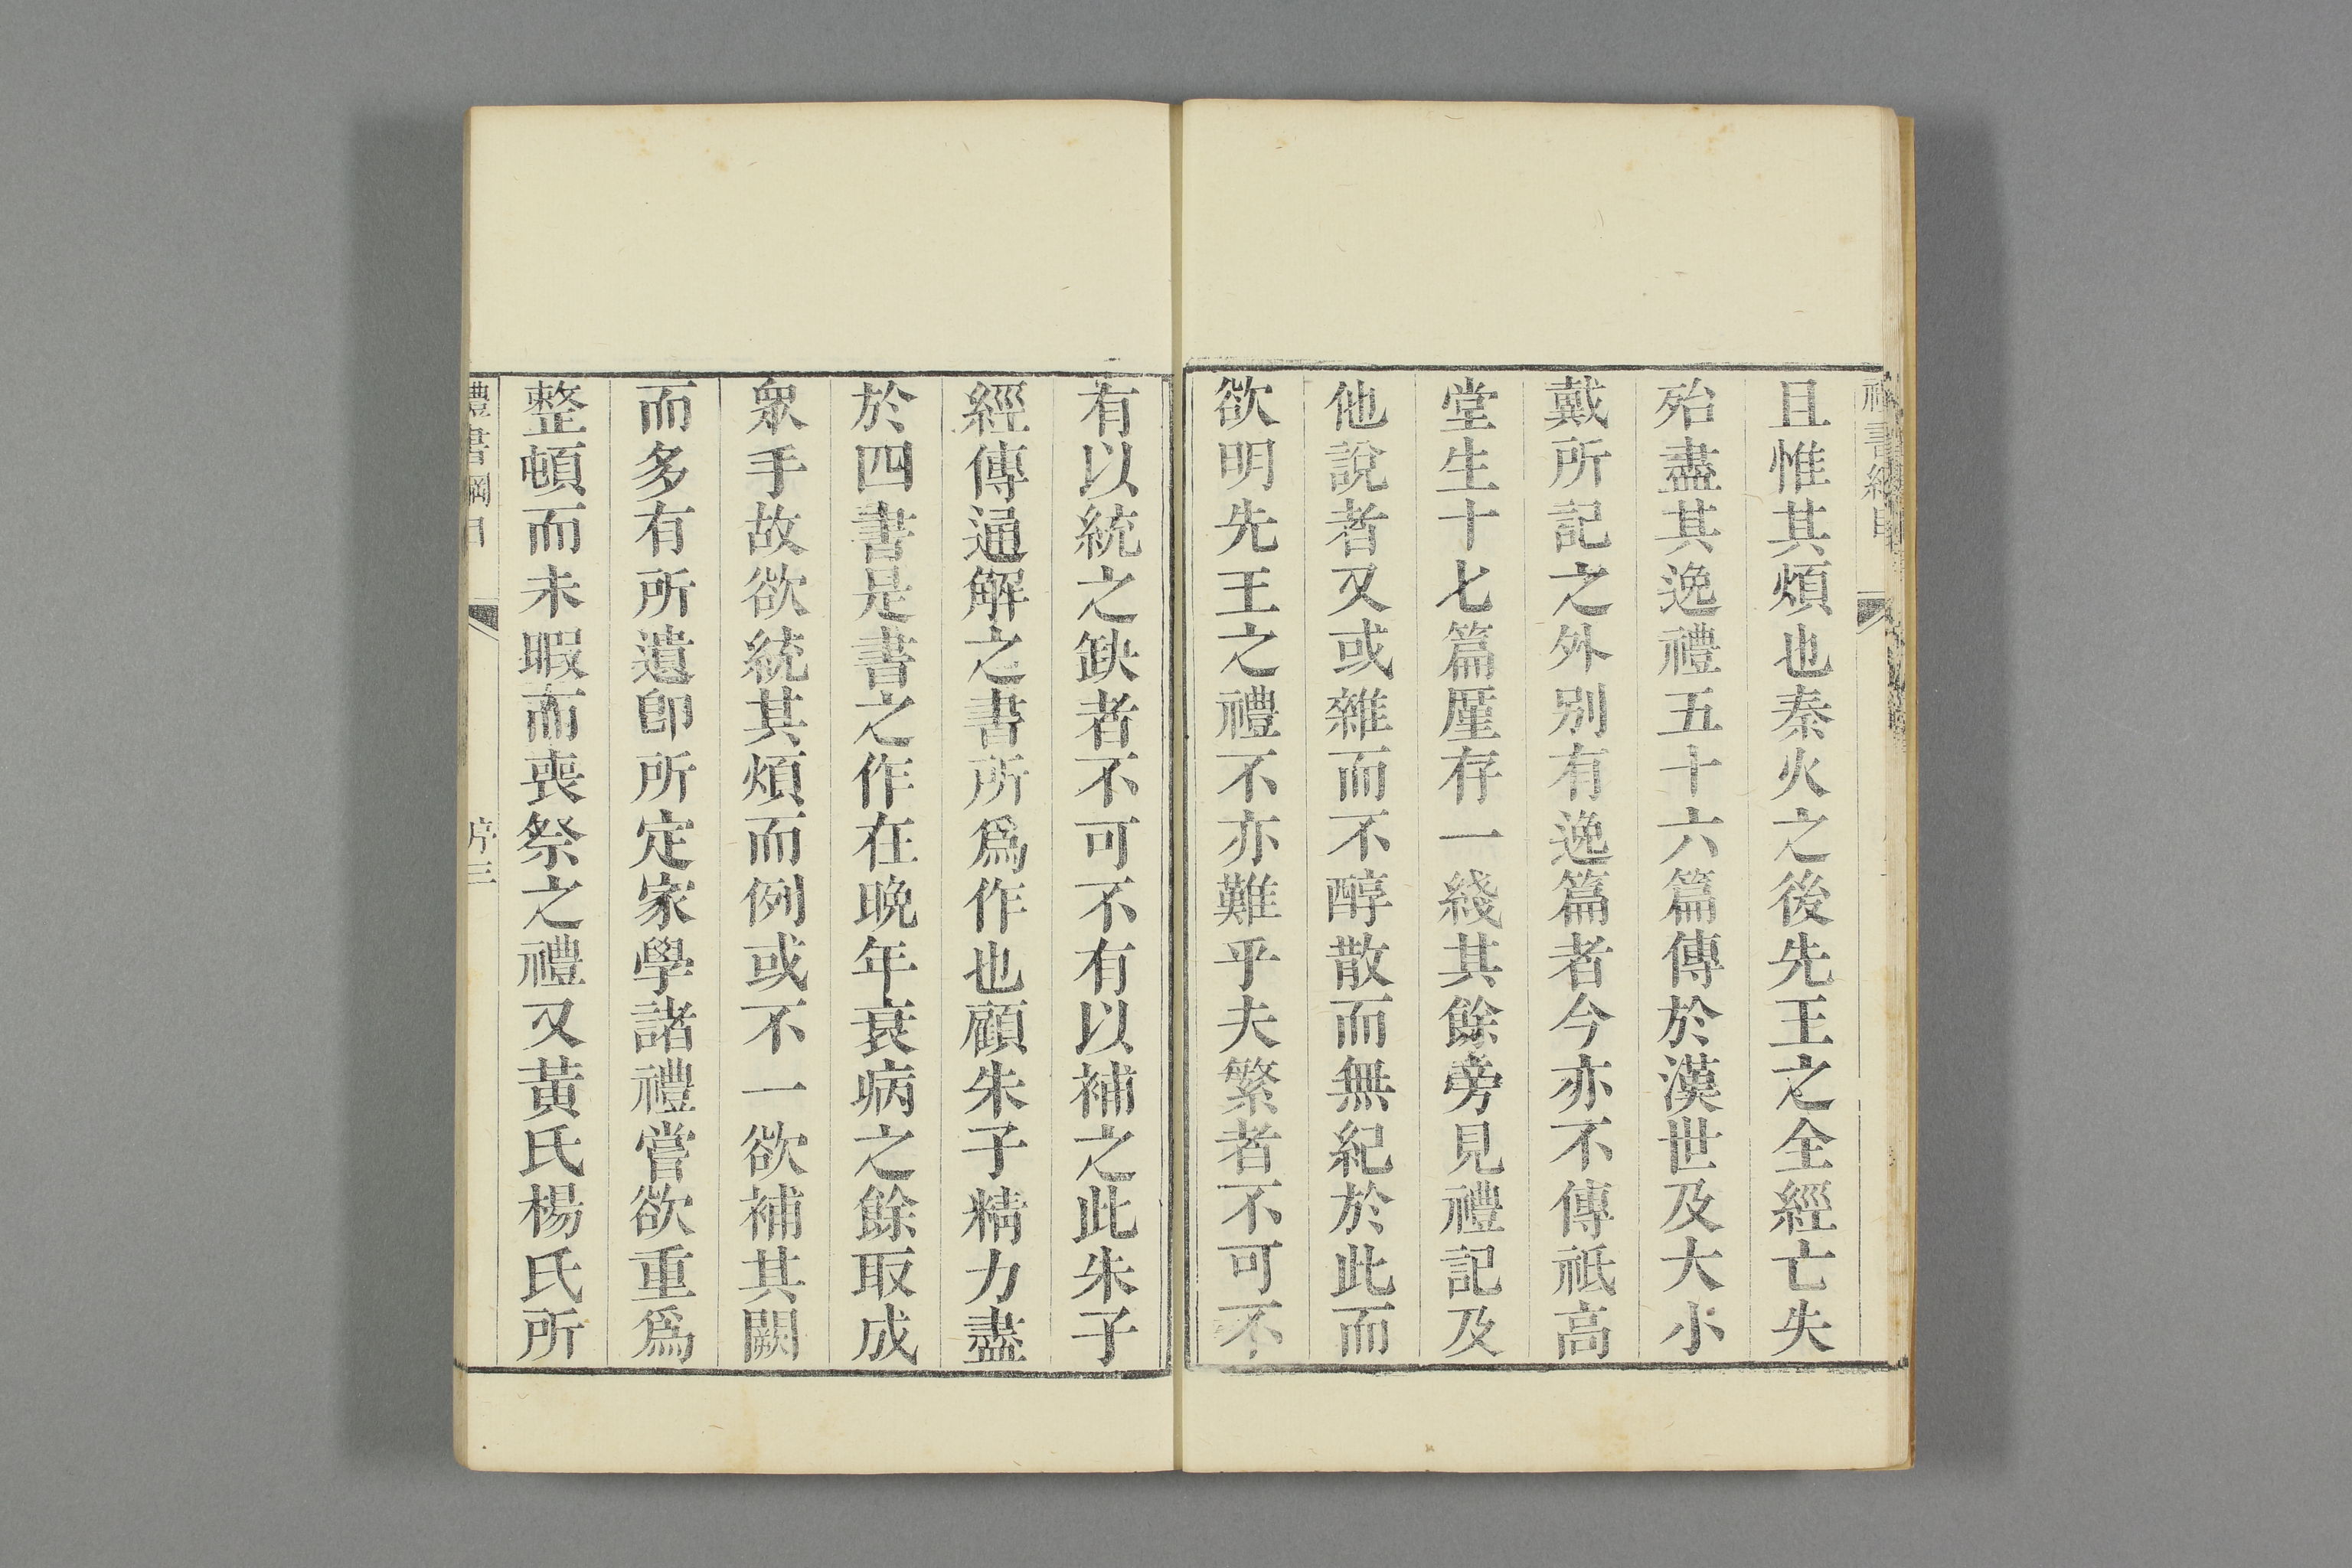 禮書綱目
且惟其煩也秦火之後先王之全經亡失
殆盡其逸禮五十六篇傳於漢世及大小
戴所記之外别有逸篇者今亦不傳祗高
堂生十七篇厪存一綫其餘旁見禮記及
他說者又或雜而不醇散而無紀於此而
欲明先王之禮不亦難乎夫繁者不可不
有以統之缺者不可不有以補之此朱子
經傳通解之書所爲作也顧朱子精力盡
於四書是書之作在晚年衰病之餘取成
衆手故欲統其煩而例或不一欲補其闕
而多有所遺卽所定家學諸禮嘗欲重爲
整頓而未暇而喪祭之禮又黃氏楊氏所
禮書綱目
序三